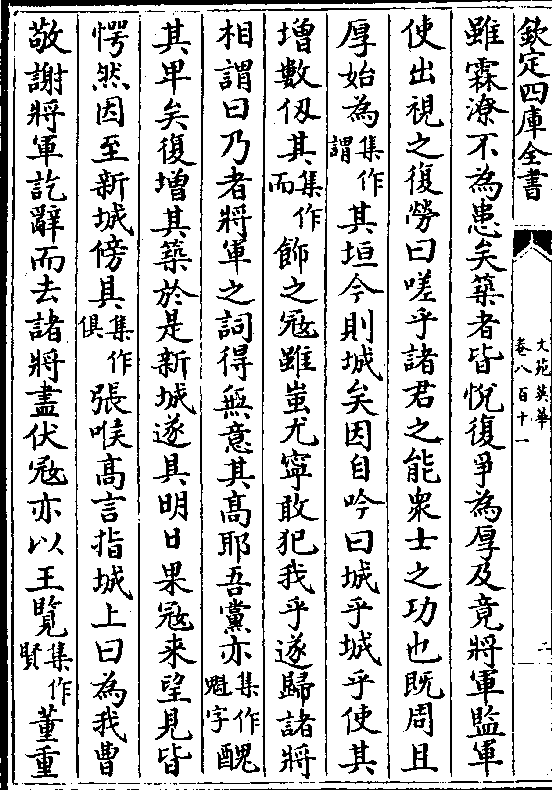 欽定四庫全書
文苑英華
卷八百十一
二
雖霖潦不為患矣築者皆悅復爭為厚及竟將軍監軍
使出視之復勞曰嗟乎諸君之能衆士之功也既周且
厚始為集作謂其垣今則城矣因自吟曰城乎城乎使其
增數仭其集作而飾之冦雖蚩尤寧敢犯我乎遂歸諸將
相謂曰乃者將軍之詞得無意其髙耶吾黨亦集作魁字醜
其卑矣復增其築於是新城遂具明日果冦来望見皆
愕然因至新城傍具集作俱張喉髙言指城上曰為我曹
敬謝將軍訖辭而去諸將盡伏冦亦以王覽集作賢董重